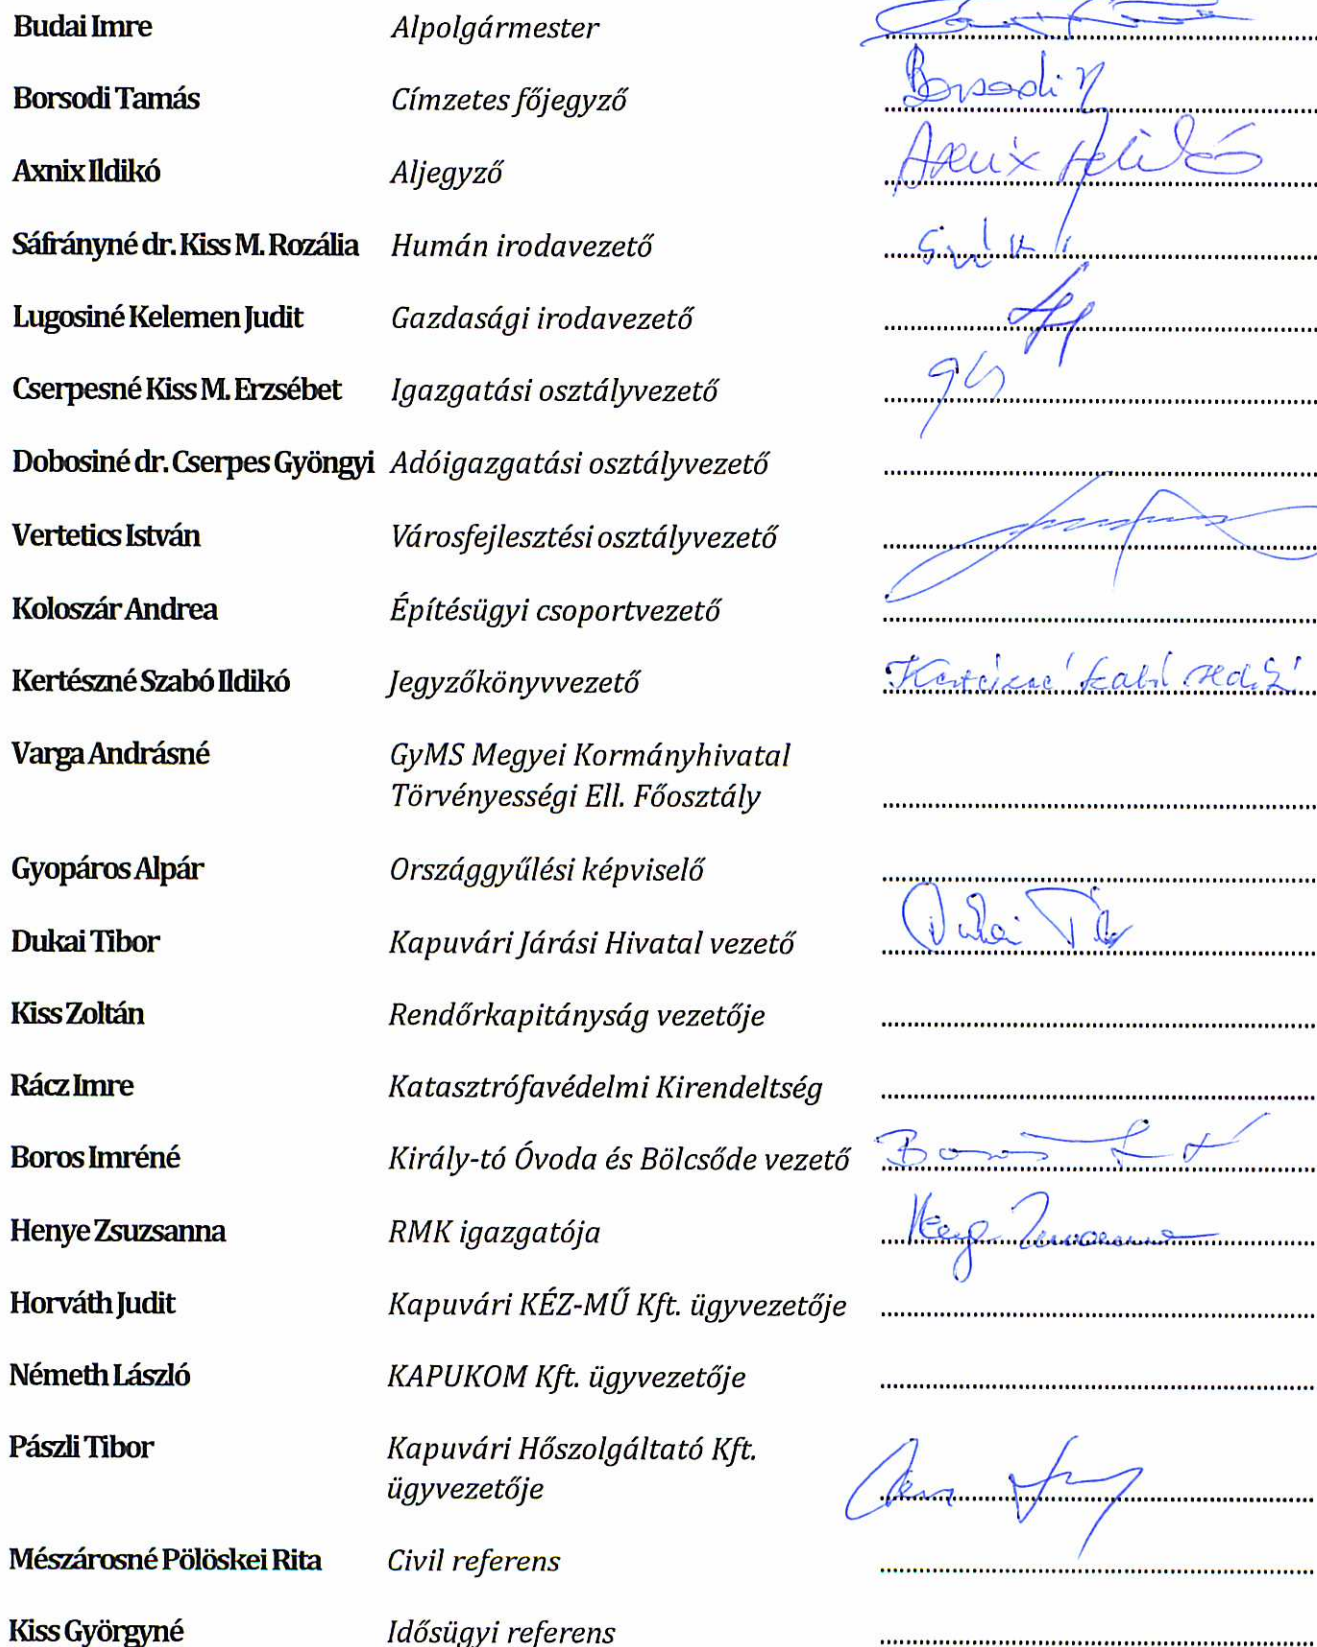 Budai Imre Alpolgármester
Borsodi Tamás Címzetes főjegyző Borsodi
Axnix Ildikó Aljegyző Axnix Ildikó
Sáfrányné dr. Kiss M. Rozália Humán irodavezető
Lugosiné Kelemen Judit Gazdasági irodavezető
Cserpesné Kiss M. Erzsébet Igazgatási osztályvezető
Dobosiné dr. Cserpes Gyöngyi Adóigazgatási osztályvezető
Vertetics István Városfejlesztési osztályvezető
Koloszár Andrea Építésügyi csoportvezető
Kertészné Szabó Ildikó Jegyzőkönyvvezető Kertészné Szabó Ildikó
Varga Andrásné GyMS Megyei Kormányhivatal
Törvényességi Ell. Főosztály
Gyopáros Alpár Országgyűlési képviselő
Dukai Tibor Kapuvári Járási Hivatal vezető Dukai Tibor
Kiss Zoltán Rendőrkapitányság vezetője
Rácz Imre Katasztrófavédelmi Kirendeltség
Boros Imréné Király-tó Óvoda és Bölcsőde vezető Boros
Henye Zsuzsanna RMK igazgatója Henye Zsuzsanna
Horváth Judit Kapuvári KÉZ-MŰ Kft. ügyvezetője
Németh László KAPUKOM Kft. ügyvezetője
Pászli Tibor Kapuvári Hőszolgáltató Kft.
ügyvezetője
Mészárosné Pölöskei Rita Civil referens
Kiss Györgyné Idősügyi referens